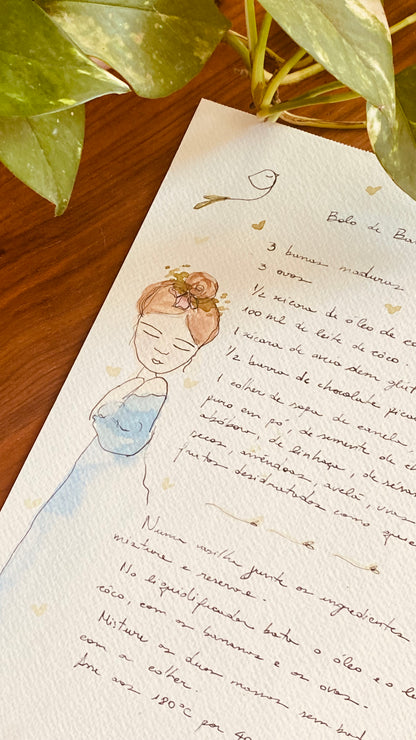 Bolo de Ba
3 bananas maduras
3 ovos
1/2 xícara de óleo de co
100 ml de leite de côco.
1 xícara de aveia sem glú
1/2 barra de chocolate pica
1 colher de sopa de canela
puro em pó, de semente de
abóbora, de linhaça, de
pecas, amêndoas, avelã, uvas
frutas desidratadas como
Numa vasilha junte os ingredientes
misture e reserve.
No liquidificador bata o óleo e o le
côco, com as bananas e os ovos.
Misture as duas massas sem bat
com a colher.
Asse aos 180°C por 40